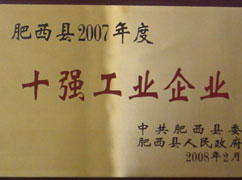 肥西县2007年度
十强工业企业
中共肥西县委
肥西县人民政府
2008年2月